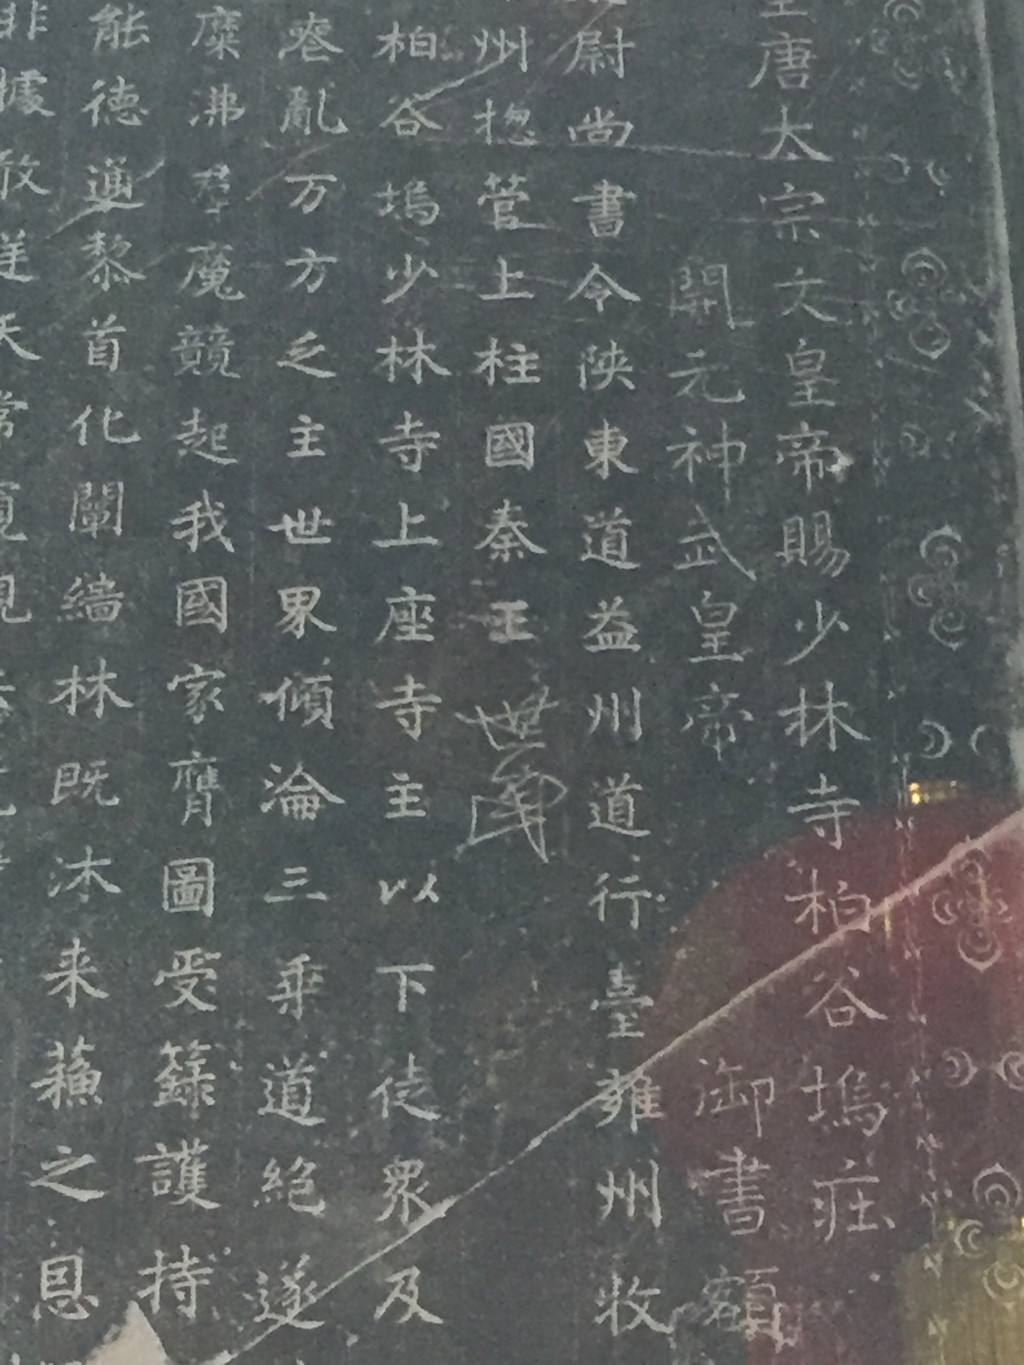 唐太宗文皇帝賜少林寺柏谷塢莊
開元神武皇帝御書額
尉尚書令陝東道益州道行臺雍州牧
州揔管上柱國秦王世民
柏谷塢少林寺上座寺主以下徒衆及
亂万方乏主世界傾淪三乘道絕遂
糜沸羣魔競起我國家膺圖受籙護持
能德通黎首化闡緇林既沐来蘇之恩
非據敢逆天常